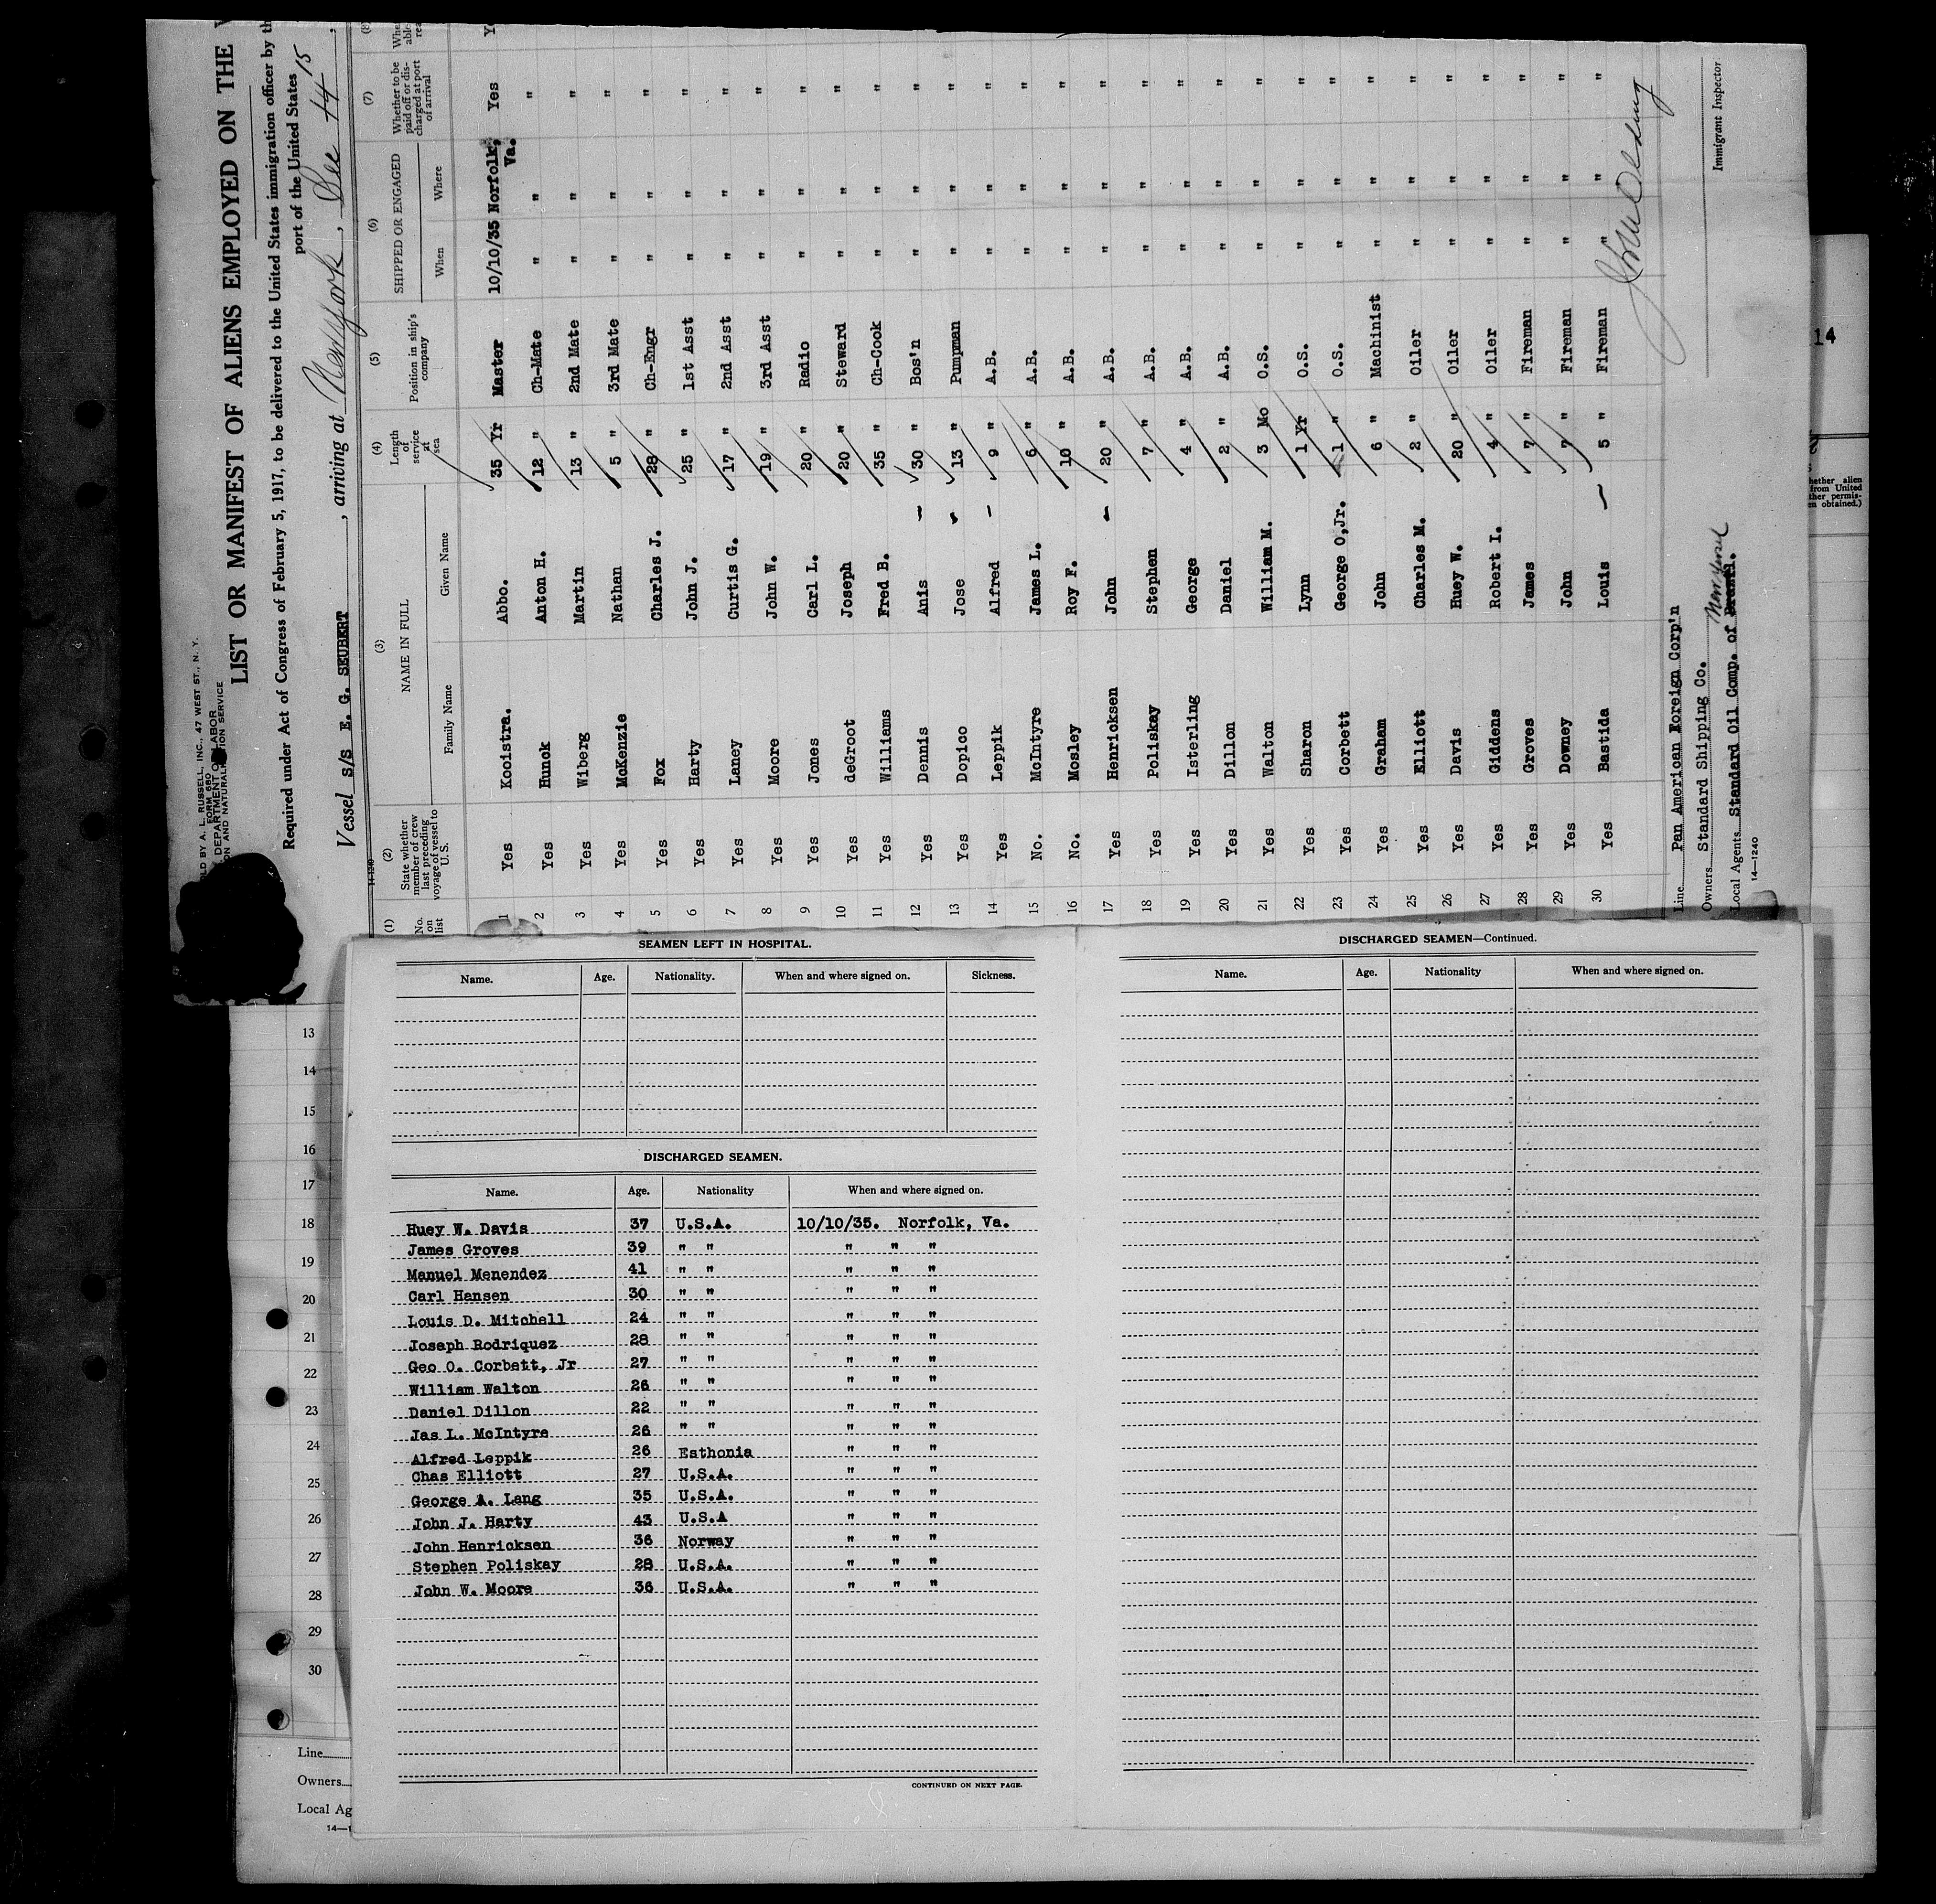 SOLD BY A. L. RUSSELL, INC., 47 WEST ST., N. Y.
FORM 680
DEPARTMENT OF LABOR
LIST OR MANIFEST OF ALIENS EMPLOYED ON THE
Required under Act of Congress of February 5, 1917, to be delivered to the United States immigration officer by th
port of the United States
Vessel S/S E. G. SEUBERT, arriving at New York, Dec 14 15,
(1) (2) (3) (4) (5) (6) (7) (8)
No. on list State whether member of crew last preceding voyage of vessel to U. S. NAME IN FULL Length of service at sea Position in ship's company SHIPPED OR ENGAGED Whether to be paid off or discharged at port of arrival
Family Name Given Name When Where
1 Yes Kooistra. Abbo. 35 Yr Master 10/10/35 Norfolk, Va. Yes
2 Yes Hunck Anton H. 12 " Ch-Mate " " "
3 Yes Wiberg Martin 13 " 2nd Mate " " "
4 Yes McKenzie Nathan 5 " 3rd Mate " " "
5 Yes Fox Charles J. 28 " Ch-Engr " " "
6 Yes Harty John J. 25 " 1st Asst " " "
7 Yes Laney Curtis G. 17 " 2nd Asst " " "
8 Yes Moore John W. 19 " 3rd Asst " " "
9 Yes Jones Carl L. 20 " Radio " " "
10 Yes deGroot Joseph 20 " Steward " " "
11 Yes Williams Fred B. 35 " Ch-Cook " " "
12 Yes Dennis Anis 30 " Bos'n " " "
13 Yes Dopico Jose 13 " Pumpman " " "
14 Yes Leppik Alfred 9 " A.B. " " "
15 No. McIntyre James L. 6 " A.B. " " "
16 No. Mosley Roy F. 10 " A.B. " " "
17 Yes Henricksen John 20 " A.B. " " "
18 Yes Poliskay Stephen 7 " A.B. " " "
19 Yes Isterling George 4 " A.B. " " "
20 Yes Dillon Daniel 2 " A.B. " " "
21 Yes Walton William M. 3 Mo O.S. " " "
22 Yes Sharon Lynn 1 Yr O.S. " " "
23 Yes Corbett George O,Jr. 1 " O.S. " " "
24 Yes Graham John 6 " Machinist " " "
25 Yes Elliott Charles M. 2 " Oiler " " "
26 Yes Davis Huey W. 20 " Oiler " " "
27 Yes Giddens Robert I. 4 " Oiler " " "
28 Yes Groves James 7 " Fireman " " "
29 Yes Downey John 7 " Fireman " " "
30 Yes Bastida Louis 5 " Fireman " " "
Line Pan American Foreign Corp'n
Owners Standard Shipping Co.
Local Agents Standard Oil Comp. of New Jersey
14—1240
Immigrant Inspector
14
hether alien
from United
ther permis-
en obtained.)
SEAMEN LEFT IN HOSPITAL.
Name. Age. Nationality. When and where signed on. Sickness.
DISCHARGED SEAMEN.
Name. Age. Nationality When and where signed on.
Huey W. Davis 37 U.S.A. 10/10/35. Norfolk, Va.
James Groves 39 " " " " "
Manuel Menendez 41 " " " " "
Carl Hansen 30 " " " " "
Louis D. Mitchell 24 " " " " "
Joseph Rodriquez 28 " " " " "
Geo O. Corbett, Jr 27 " " " " "
William Walton 26 " " " " "
Daniel Dillon 22 " " " " "
Jas L. McIntyre 26 " " " " "
Alfred Leppik 26 Esthonia " " "
Chas Elliott 27 U.S.A. " " "
George A. Lang 35 U.S.A. " " "
John J. Harty 43 U.S.A " " "
John Henricksen 36 Norway " " "
Stephen Poliskay 28 U.S.A. " " "
John W. Moore 36 U.S.A. " " "
CONTINUED ON NEXT PAGE.
DISCHARGED SEAMEN—Continued.
Name. Age. Nationality When and where signed on.
13
14
15
16
17
18
19
20
21
22
23
24
25
26
27
28
29
30
Line
Owners
Local Ag
14—1